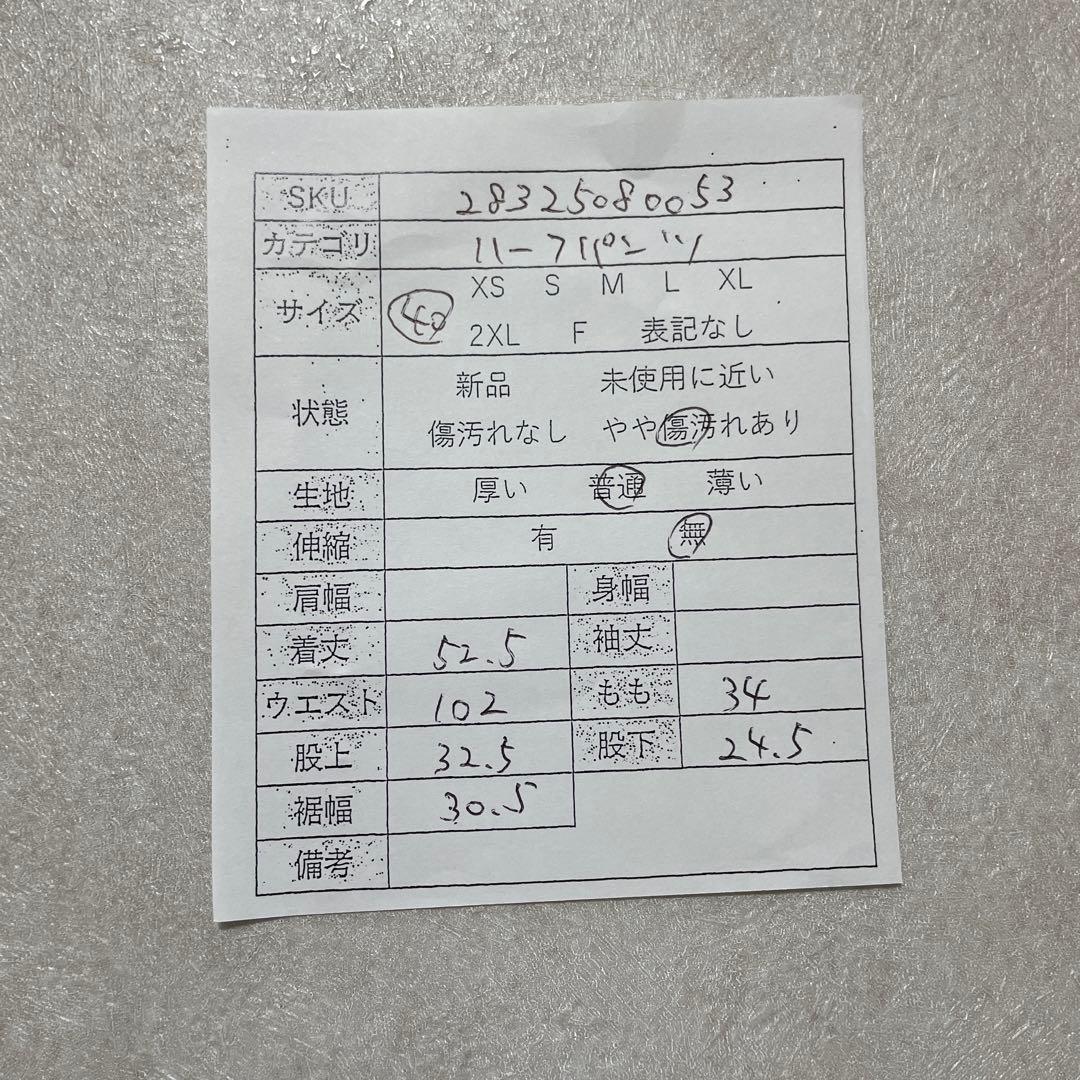 SKU 28325080053
カテゴリ ハーフパンツ
サイズ 40 XS S M L XL
2XL F 表記なし
状態 新品 未使用に近い
傷汚れなし やや傷汚れあり
生地 厚い 普通 薄い
伸縮 有 無
肩幅 身幅
着丈 52.5 袖丈
ウエスト 102 もも 34
股上 32.5 股下 24.5
裾幅 30.5
備考